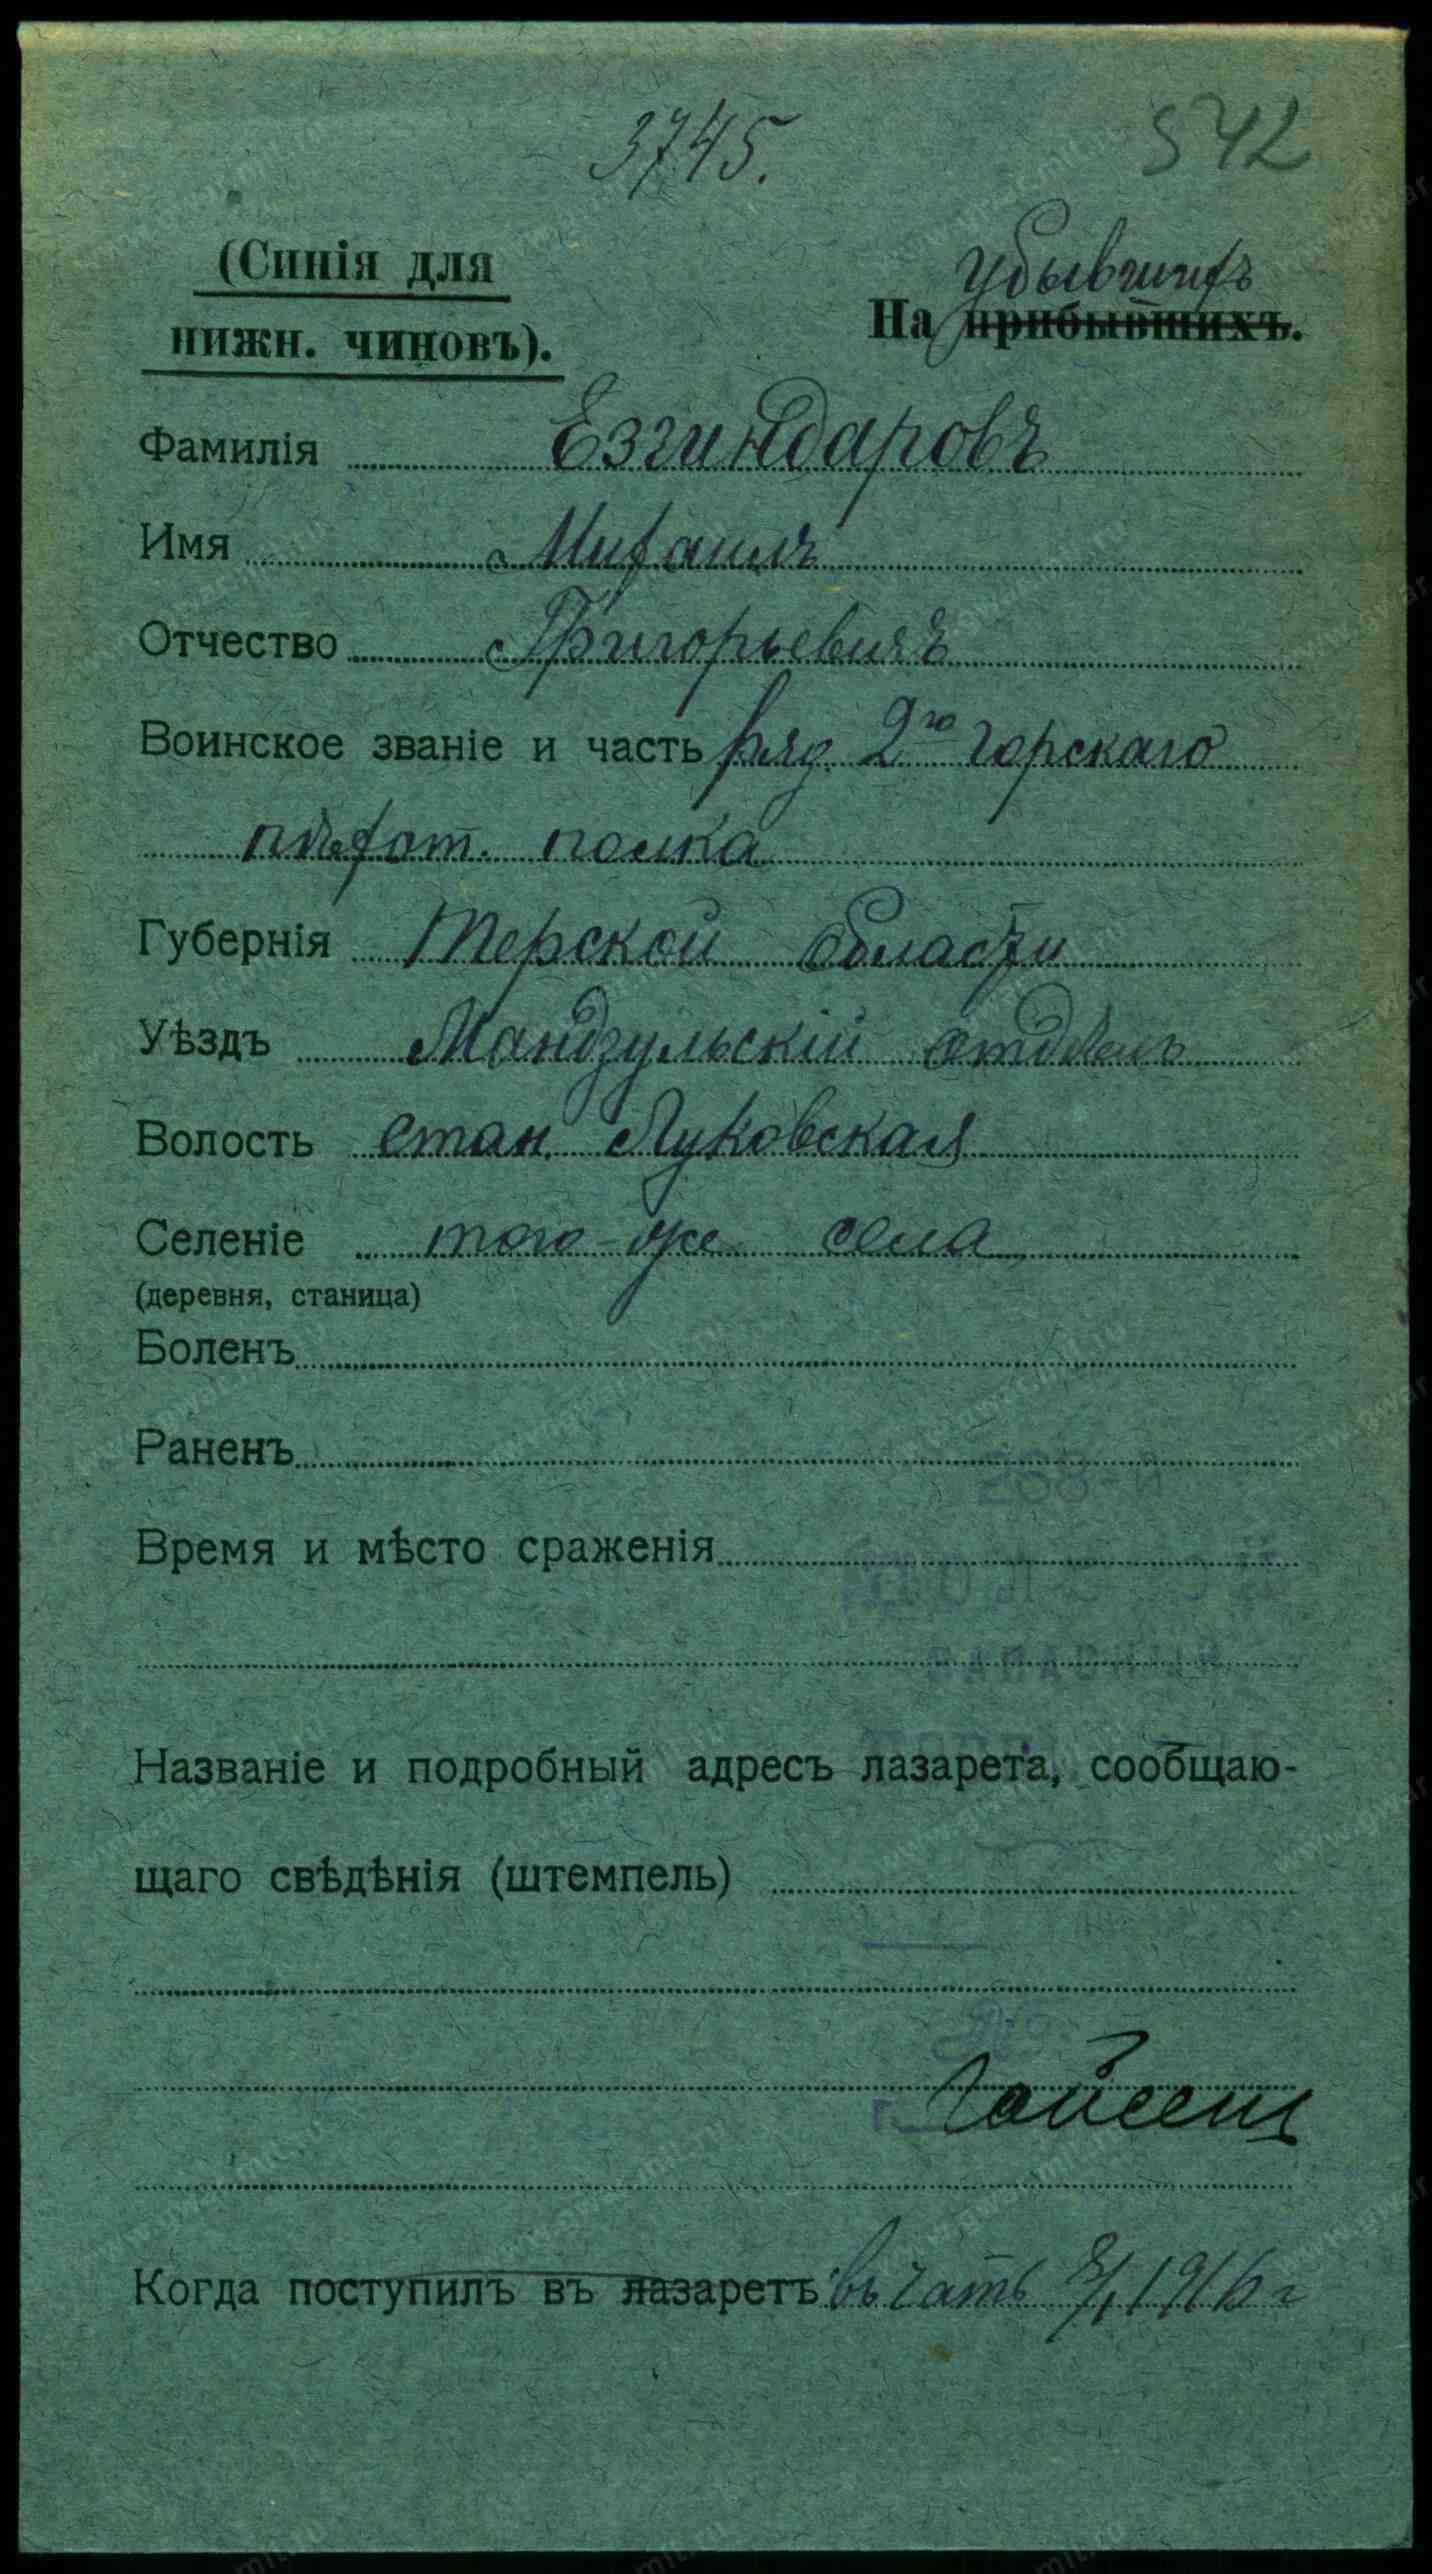 3745.
542
(Синія для
нижн. чиновъ).
убывшихъ
На прибывшихъ.
Фамилія Езгиндаровъ
Имя Михаилъ
Отчество Григорьевичъ
Воинское званіе и часть ряд. 2го Горскаго
пѣхот. полка
Губернія Терской области
Уѣздъ Мандзульскій отдѣлъ
Волость стан. Луковская
Селеніе того-же села
(деревня, станица)
Боленъ
Раненъ
Время и мѣсто сраженія
Названіе и подробный адресъ лазарета, сообщаю-
щаго свѣдѣнія (штемпель)
Когда поступилъ въ лазаретъ въ часть 8/I 1916 г